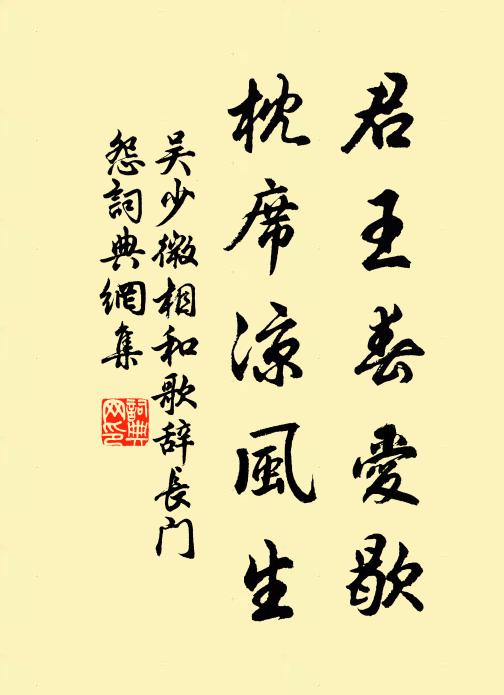 君王春愛歇
枕席涼風生
吴少微相和歌辞長门
怨詞典網集
詞典网印